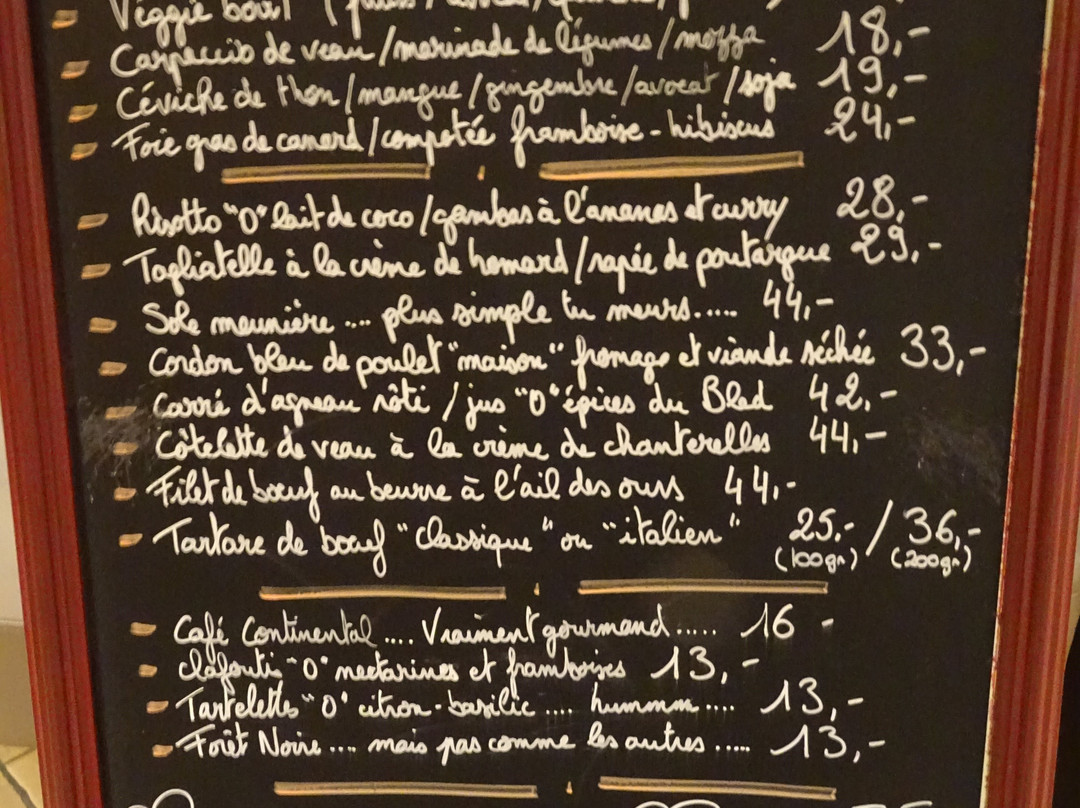 Veggie bowl
Carpaccio de veau / marinade de légumes / mozza 18,-
Céviche de thon / mangue / gingembre / avocat / soja 19,-
Foie gras de canard / compotée framboise - hibiscus 24,-
Risotto "O" lait de coco / gambas à l'ananas et curry 28,-
Tagliatelle à la crème de homard / rapée de poutargue 29,-
Sole meunière .... plus simple tu meurs..... 44,-
Cordon bleu de poulet "maison" fromage et viande séchée 33,-
Carré d'agneau rôti / jus "O" épices du Bled 42,-
Côtelette de veau à la crème de chanterelles 44,-
Filet de boeuf au beurre à l'ail des ours 44,-
Tartare de boeuf "classique" ou "italien" 25.- / 36,-
(100gr) (200gr)
Café Continental .... Vraiment gourmand ..... 16 -
clafouti "O" nectarines et framboises 13,-
Tartelette "O" citron - basilic .... hummm .... 13,-
Forêt Noire .... mais pas comme les autres ..... 13,-